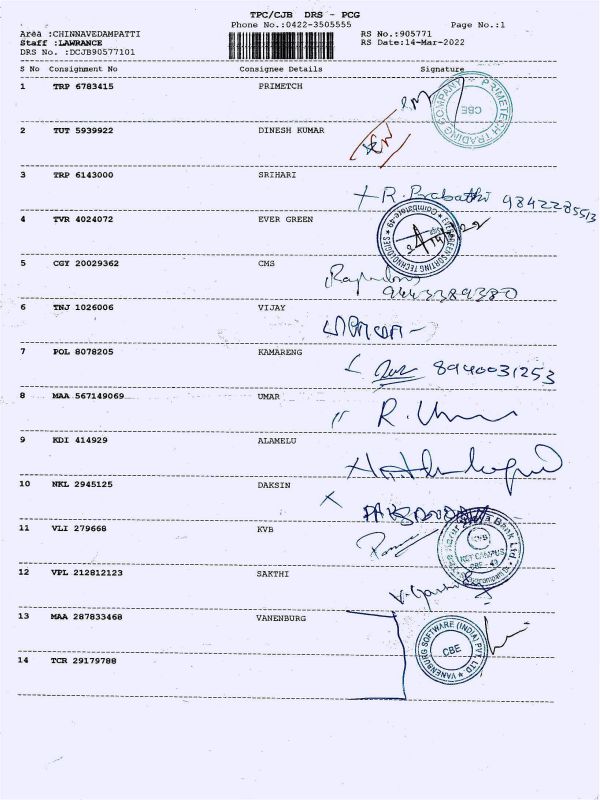 TPC/CJB DRS - PCG
Phone No.:0422-3505555
Page No.:1
Area :CHINNAVEDAMPATTI
Staff :LAWRANCE
DRS No. :DCJB90577101
RS No.:905771
RS Date:14-Mar-2022
S No Consignment No Consignee Details Signature
1 TRP 6783415 PRIMETCH
PRIMETECH TRADING COMPANY CBE
2 TUT 5939922 DINESH KUMAR
3 TRP 6143000 SRIHARI
R. Prabathi 9842285513
4 TVR 4024072 EVER GREEN
EVERGREEN SORTING TECHNOLOGIES Coimbatore-49
5 CGY 20029362 CMS
9443389380
6 TNJ 1026006 VIJAY
7 POL 8078205 KAMARENG
8940031253
8 MAA 567149069 UMAR
9 KDI 414929 ALAMELU
10 NKL 2945125 DAKSIN
11 VLI 279668 KVB
KVB KCT CAMPUS CBE - 49
12 VPL 212812123 SAKTHI
13 MAA 287833468 VANENBURG
VANENBURG SOFTWARE (INDIA) PVT. LTD. CBE
14 TCR 29179788